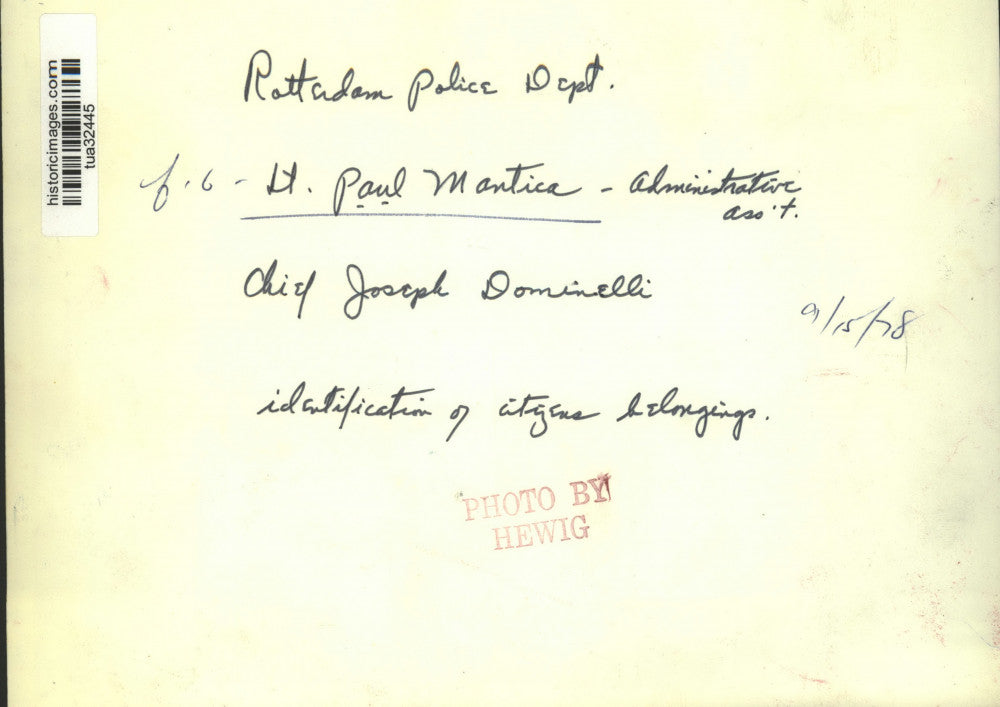 historicimages.com
tua32445
Rotterdam Police Dept.
f.6 - Lt. Paul Mantica - Administrative
ass't.
Chief Joseph Dominelli
9/15/78
identification of citizens belongings.
PHOTO BY
HEWIG